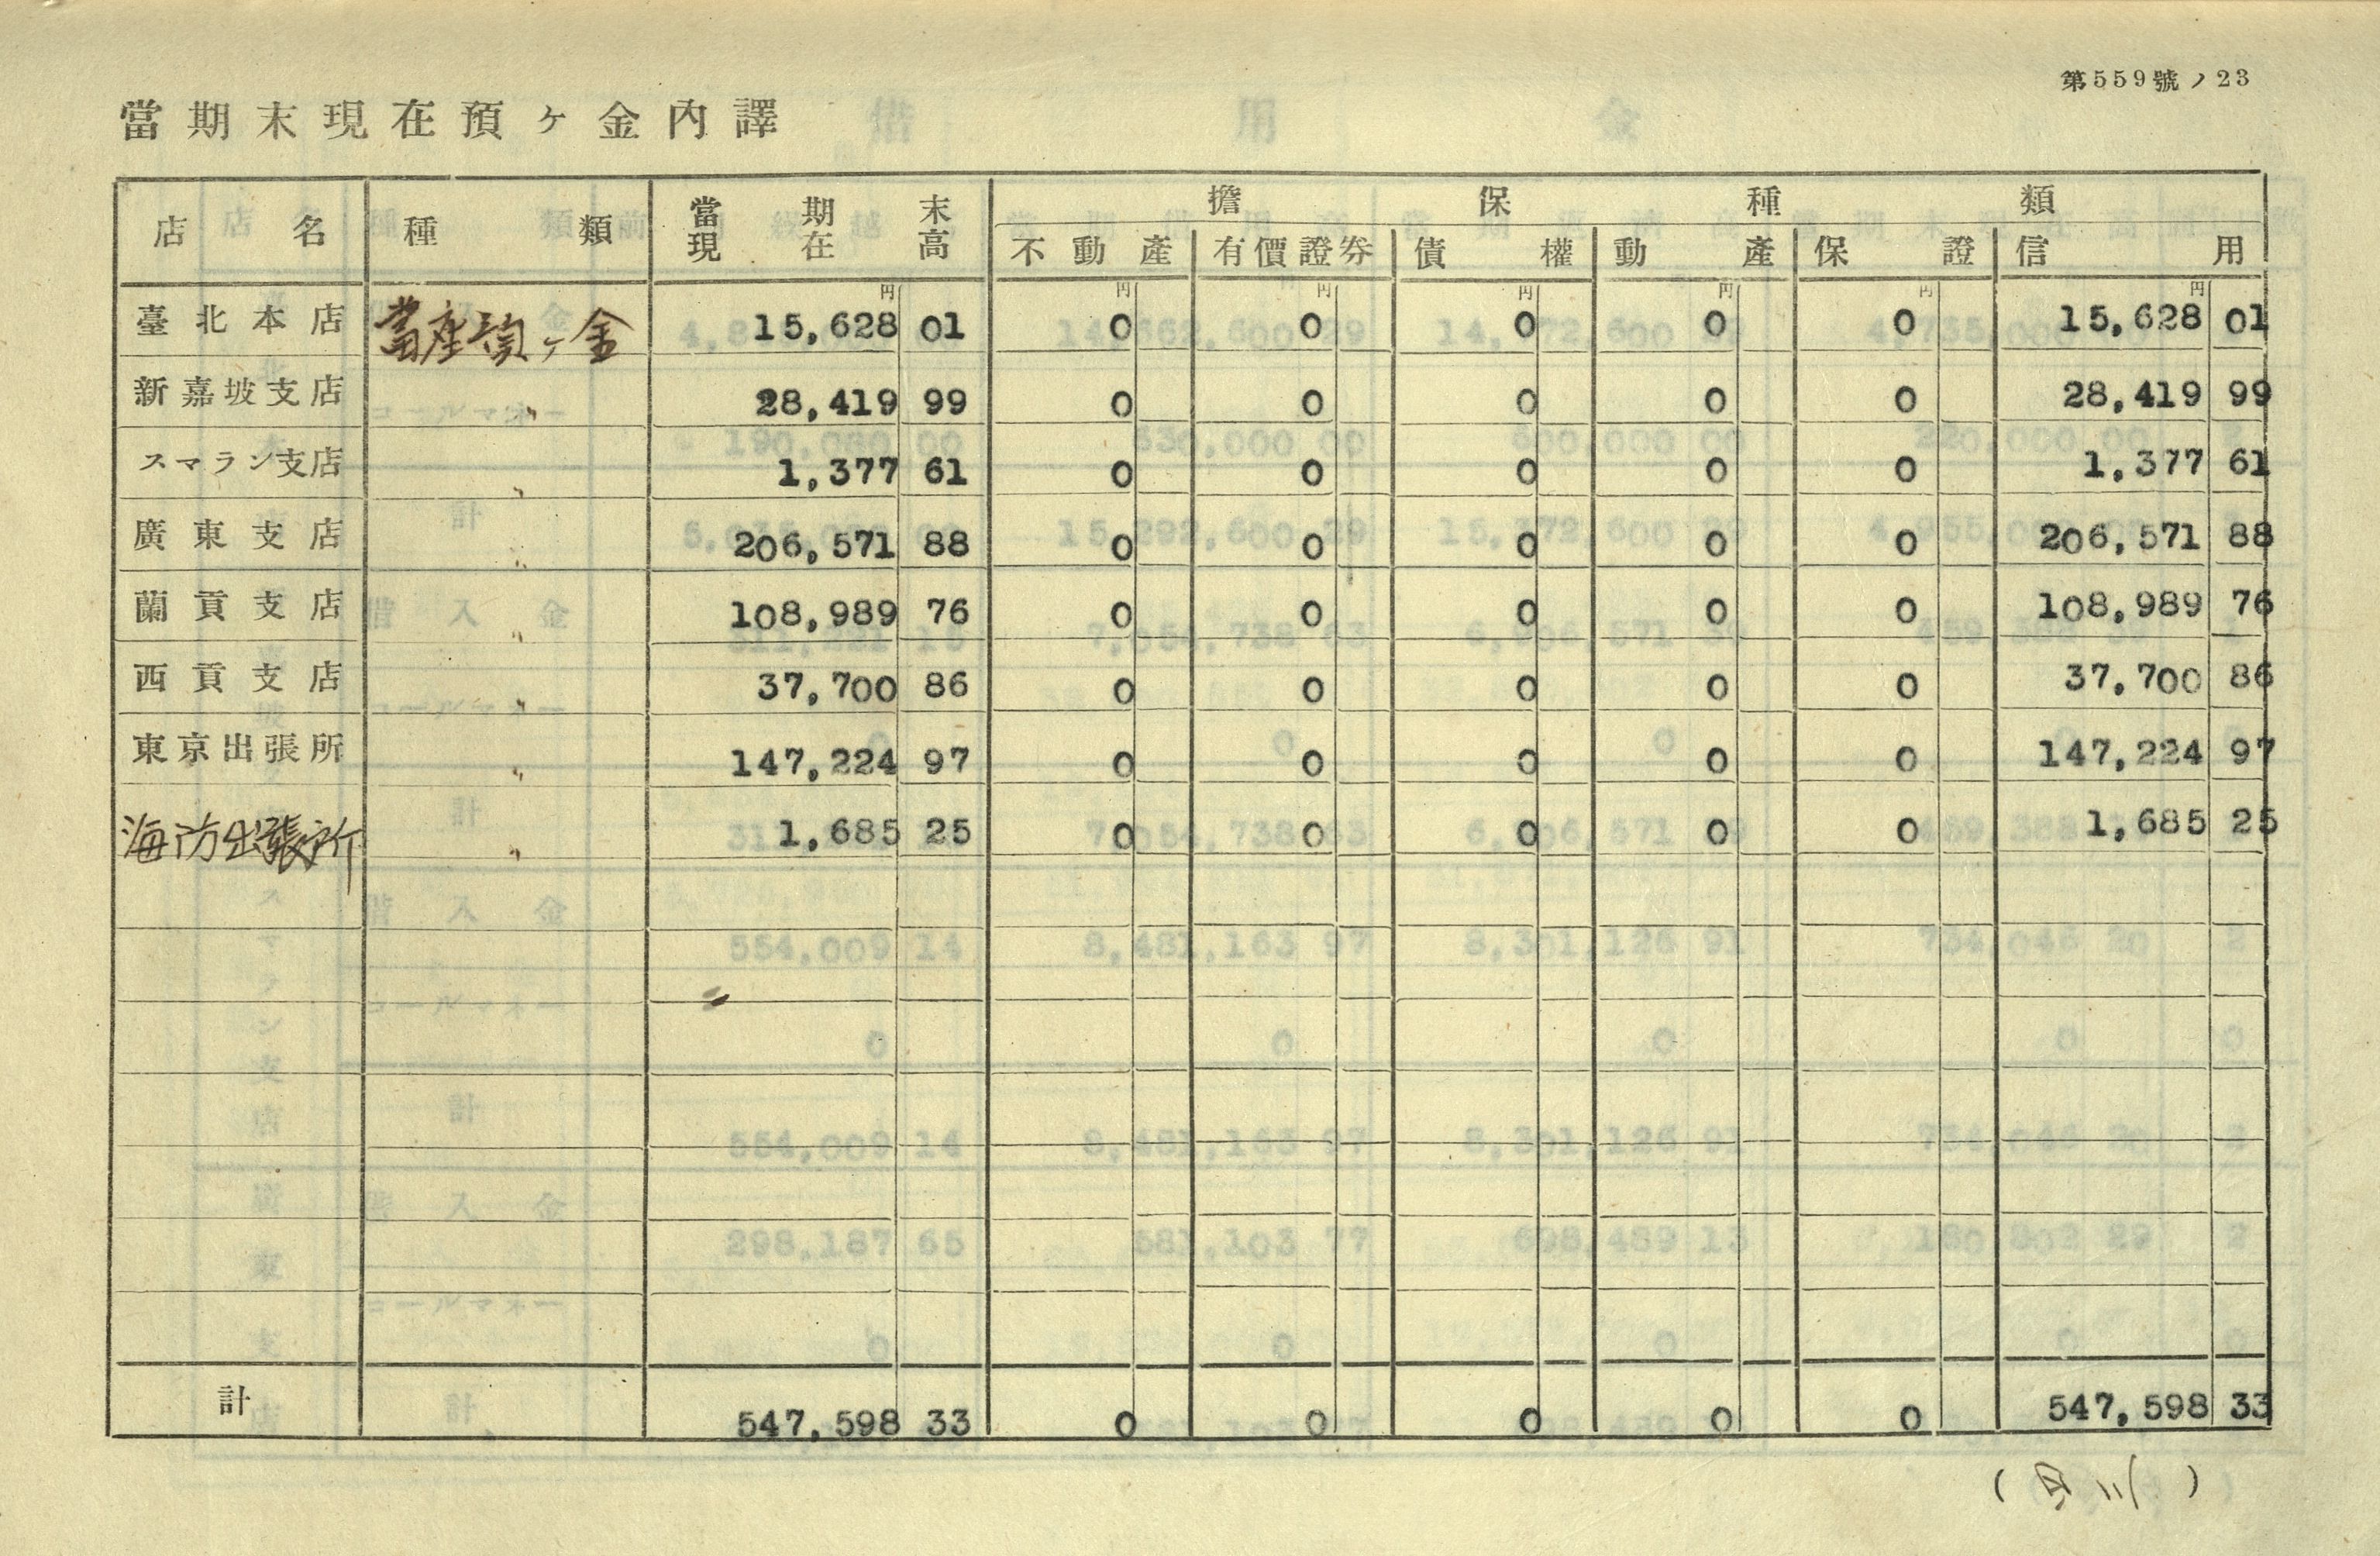 第559號ノ23
當期末現在預ヶ金內譯
店名 種類 當期末現在高 擔保種類
不動產 有價證券 債權 動產 保證 信用
円 円 円 円 円 円 円
臺北本店 當座預ヶ金 15,628 01 0 0 0 0 0 15,628 01
新嘉坡支店 〃 28,419 99 0 0 0 0 0 28,419 99
スマラン支店 〃 1,377 61 0 0 0 0 0 1,377 61
廣東支店 〃 206,571 88 0 0 0 0 0 206,571 88
蘭貢支店 〃 108,989 76 0 0 0 0 0 108,989 76
西貢支店 〃 37,700 86 0 0 0 0 0 37,700 86
東京出張所 〃 147,224 97 0 0 0 0 0 147,224 97
海防出張所 〃 1,685 25 0 0 0 0 0 1,685 25
計 547,598 33 0 0 0 0 0 547,598 33